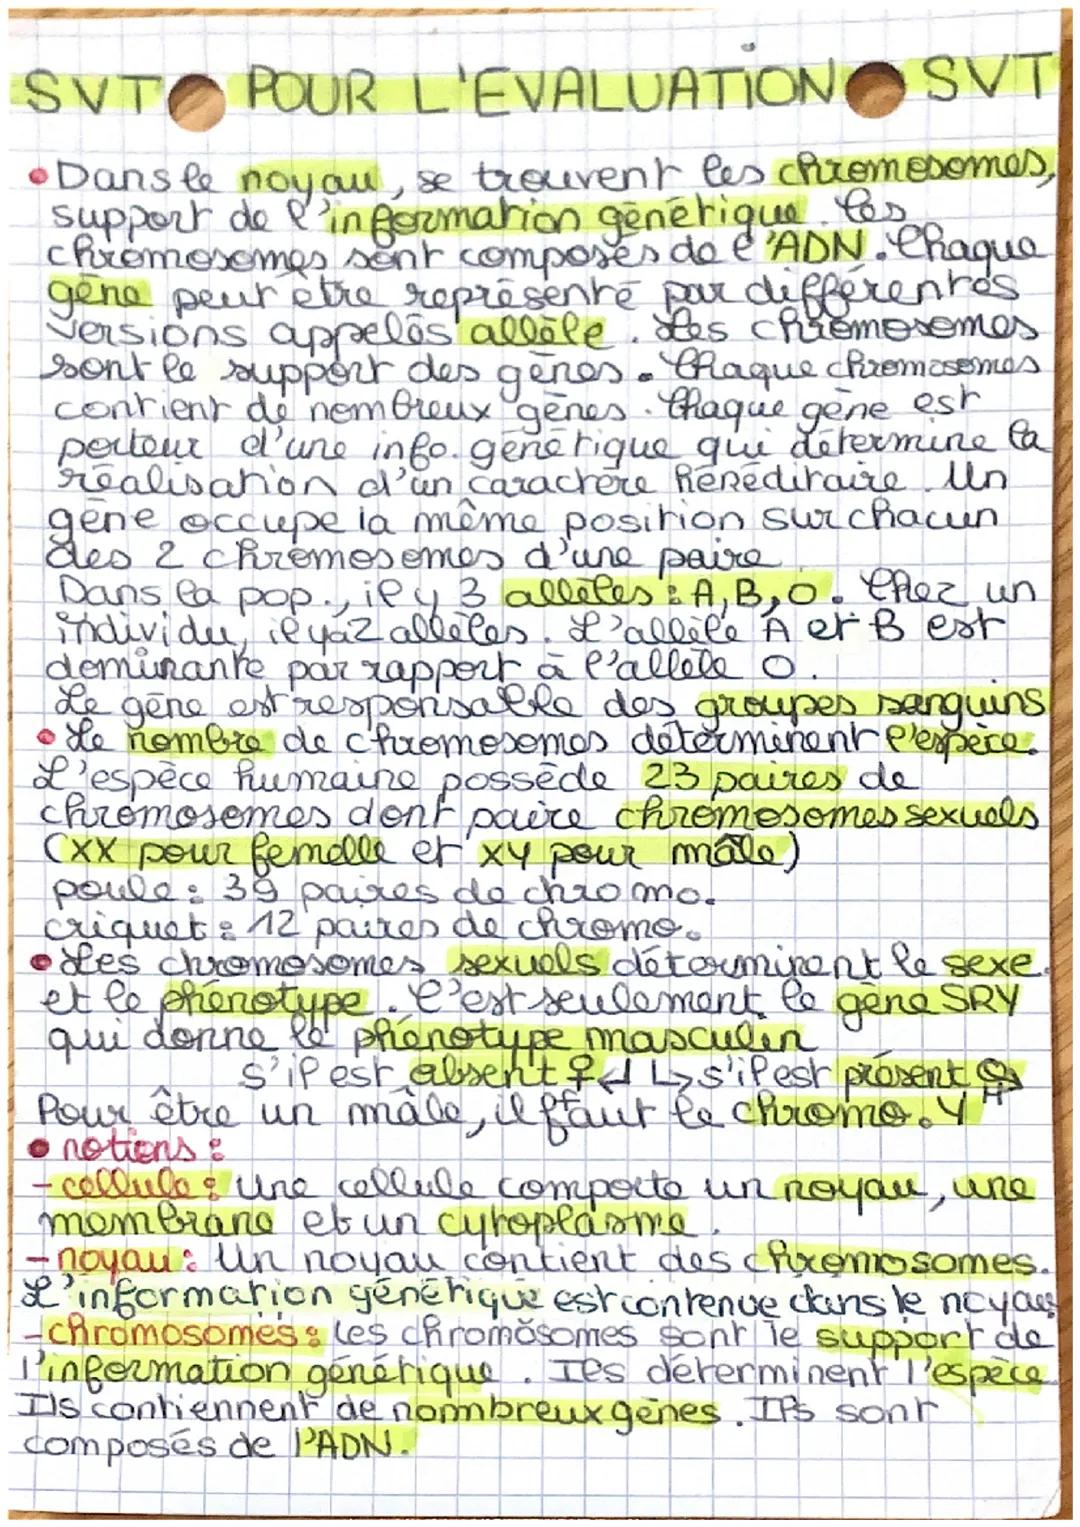 SVT POUR L'EVALUATION SVT
• Dans le noyau, se trouvent les chromosomes,
support de l'information génétique. Les
chromosomes sont composés de l'ADN. Chaque
gène peut être représenté par différentes
versions appelés allèle. Les chromosomes
sont le support des gènes. Chaque chromosomes
contient de nombreux gènes. Chaque gène est
porteur d'une info. génétique qui détermine la
réalisation d'un caractère héréditaire. Un
gène occupe la même position sur chacun
des 2 chromosomes d'une paire.
Dans la pop., il y 3 allèles : A, B, O. Chez un
individu, il y a 2 allèles. L'allèle A et B est
dominante par rapport à l'allèle O.
Le gène est responsable des groupes sanguins
• Le nombre de chromosomes déterminent l'espèce.
L'espèce humaine possède 23 paires de
chromosomes dont paire chromosomes sexuels
(XX pour femelle et XY pour mâle)
poule : 39 paires de chromo.
criquet : 12 paires de chromo.
• Les chromosomes sexuels déterminent le sexe
et le phénotype. C'est seulement le gène SRY
qui donne le phénotype masculin
s'il est absent ♀ ↲ ↳ s'il est présent
Pour être un mâle, il faut le chromo. Y
• notions :
- cellule : Une cellule comporte un noyau, une
membrane et un cytoplasme.
- noyau : Un noyau contient des chromosomes.
L'information génétique est contenue dans le noyau
- chromosomes : Les chromosomes sont le support de
l'information génétique. Ils déterminent l'espèce
Ils contiennent de nombreux gènes. Ils sont
composés de l'ADN.